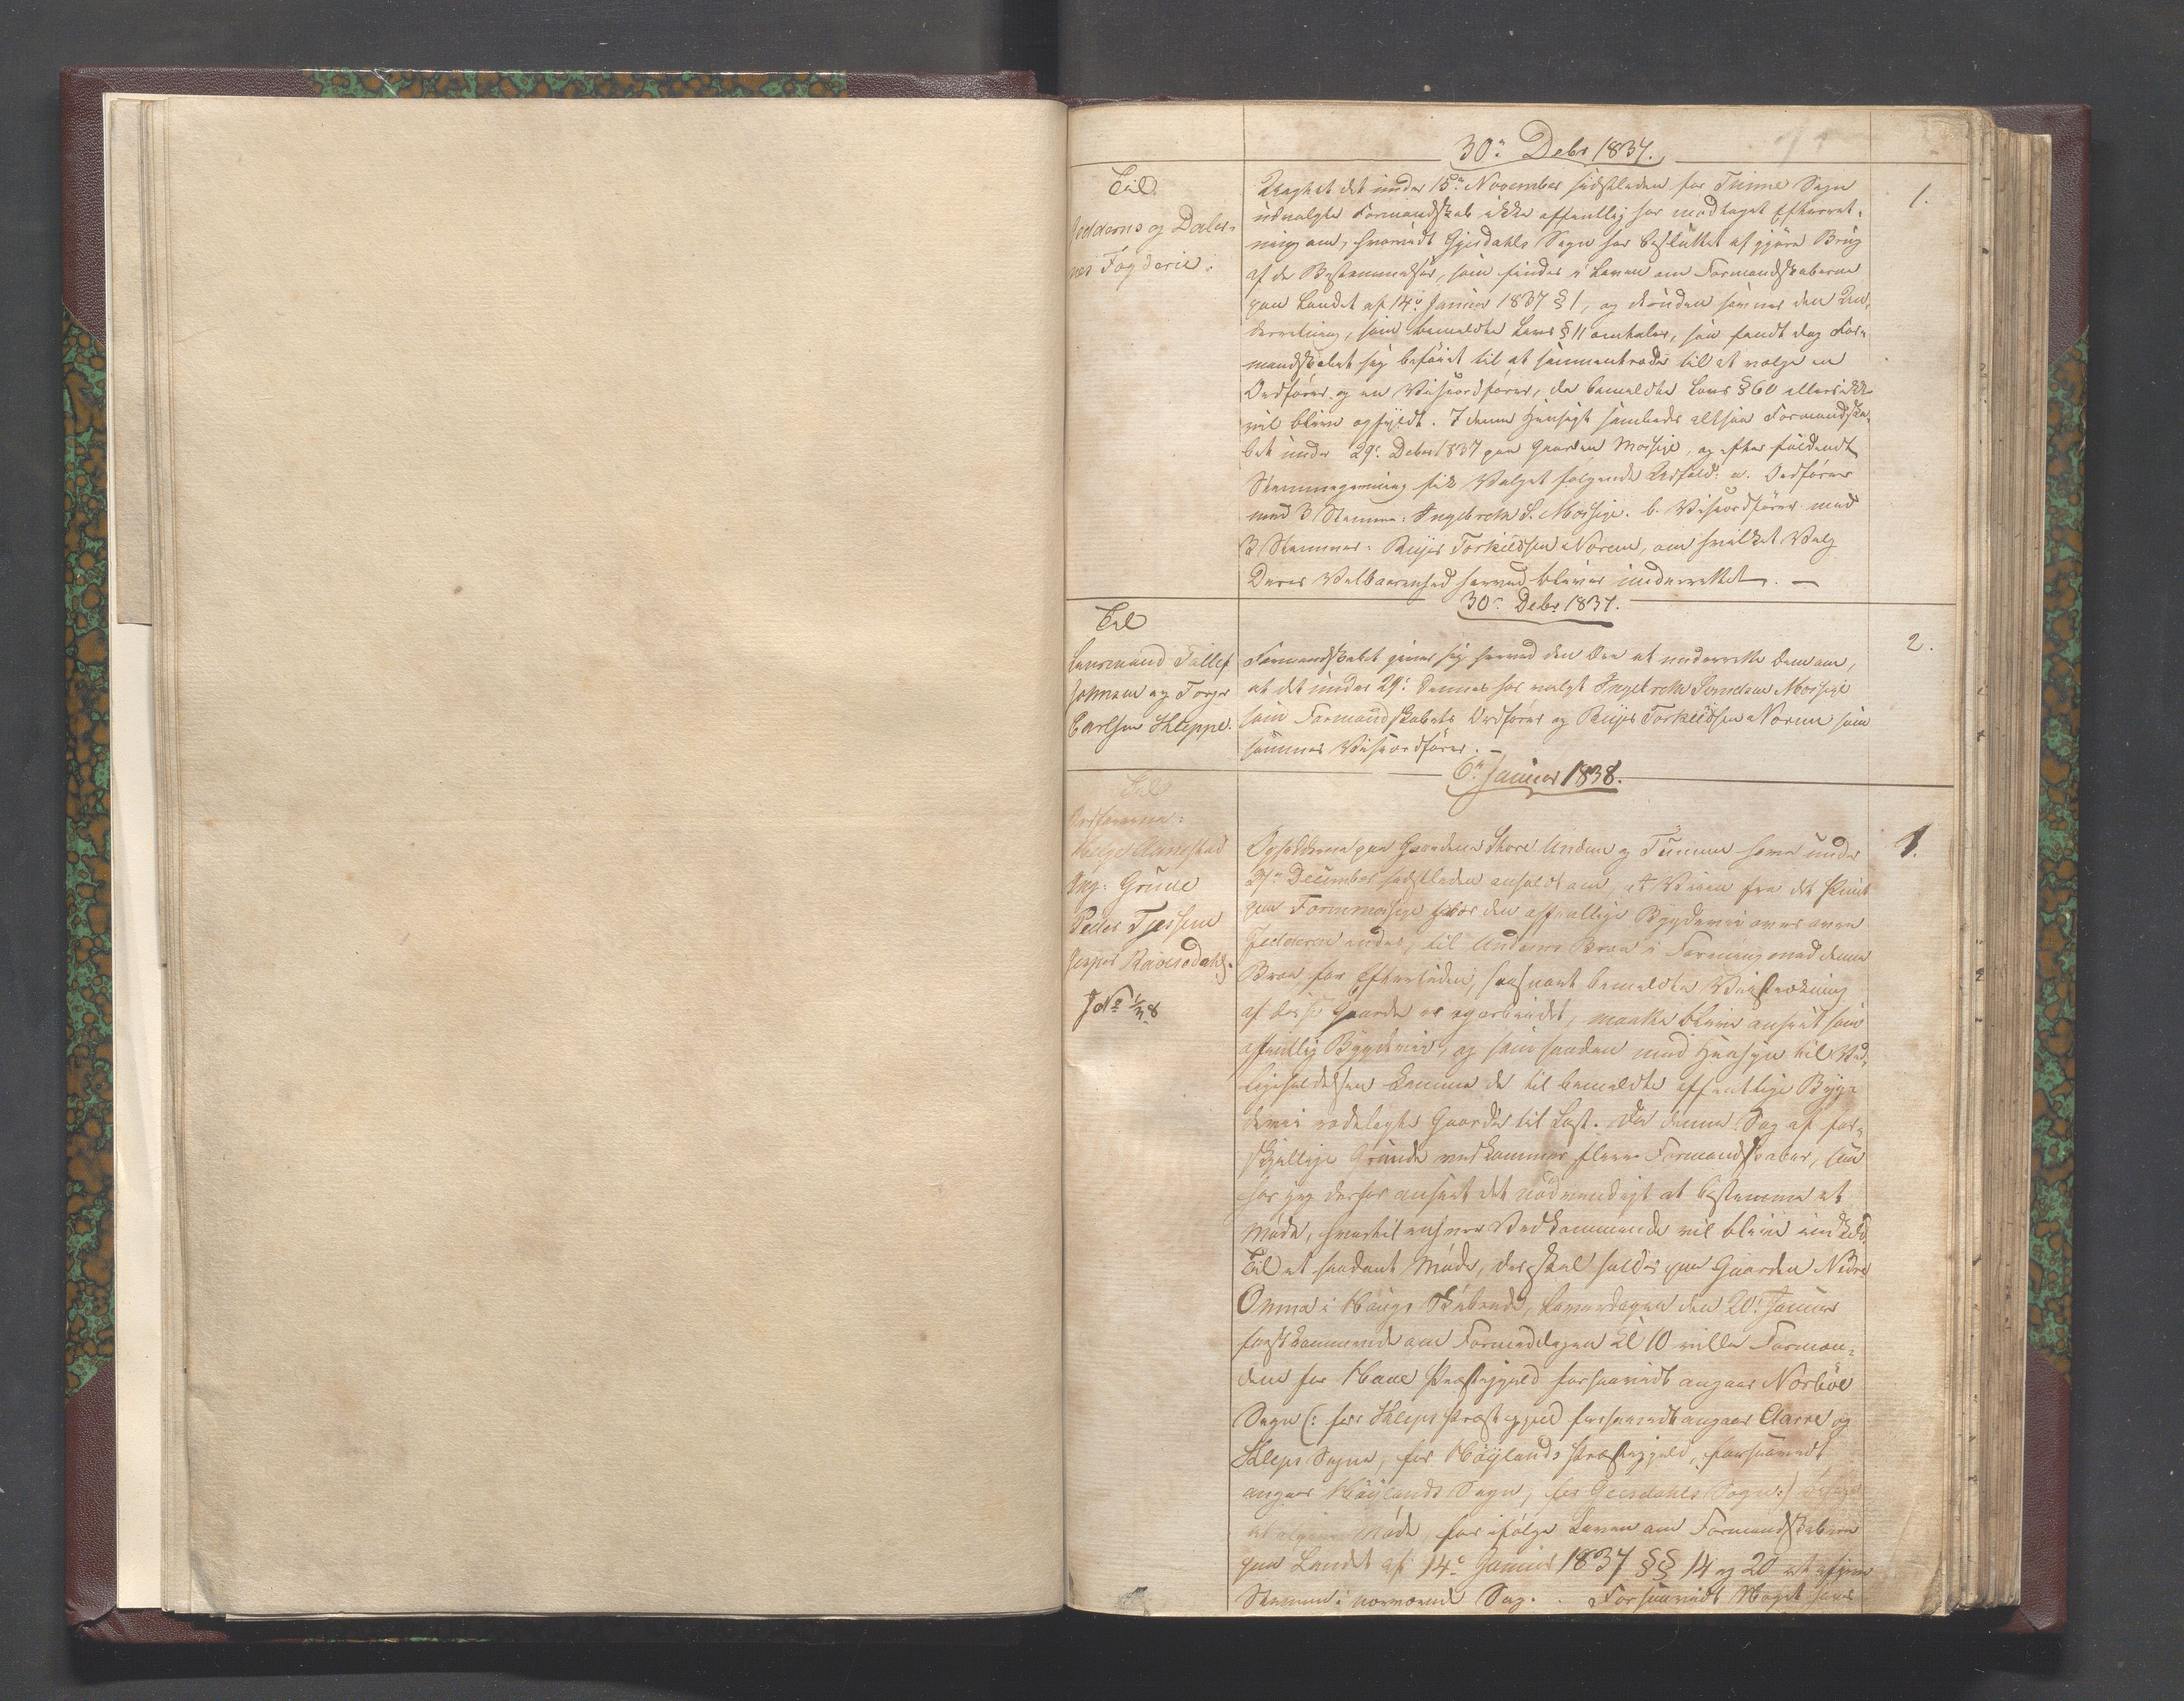 30te Debr 1837.
Til
Jedderens og Daler-
nes Fogderie.
1.
Uagtet det under 15de November sidstleden for Time Sogn
udvalgte Formandskab ikke offentlig har modtaget Efterret-
ning om, hvorvidt Gjesdahls Sogn har besluttet at gjøre Brug
af de Bestemmelser, som findes i Loven om Formandskaberne
paa Landet af 14de Januar 1837 § 1, og desuden savner den Un-
derretning, som bemeldte Lovs § 11 omtaler, saa fandt dog For-
mandskabet sig beføiet til at sammentræde til at vælge en
Ordfører og en Viseordfører, da bemeldte Lovs § 60 ellers ikke
vil blive opfyldt. I denne Hensigt samledes altsaa Formandska-
bet under 29de Debr 1837 paa Gaarden Mossige, og efter fuldendt
Stemmegivning fik Valget følgende Udfald: a. Ordfører
med 3 Stemmer: Ingebreth S. Mossige. b. Viseordfører med
3 Stemmer: Reijer Torkildsen Norem, om hvilket Valg
Deres Velbaarenhed herved bliver underrettet. —
30te Debr 1837.
Til
Lensmand Tollef
Johnsen og Torger
Carlsen Kleppe.
2.
Formandskabet giver sig herved den Ære at underrette Dem om,
at det under 29de dennes har valgt Ingebreth Mossige
som Formandskabets Ordfører og Reijer Torkildsen Norem som
sammes Viseordfører. —
6te Januar 1838.
Til
Ordførerne:
Helge Aanestad
Ing: Grude
Peder Tjessem
Jesper Ravnsdahl.
J No 1/38
1.
Opsidderne paa Gaardene Store Undem og Tunem have under
27de December sidstleden anholdt om, at Veien fra det Punct
paa Fornemossige hvor den offentlige Bygdevei over øvre
Jedderen ender, til Undems Broe i Forening med denne
Broe for Eftertiden, saasnart bemeldte Veistrækning
af disse Gaarde er oparbeidet, maatte blive anseet som
offentlig Bygdevei, og som saadan med Hensyn til Ved-
ligeholdelsen komme de til bemeldte offentlige Byg-
devei rodelagte Gaarder til Last. Da denne Sag af for-
skjellige Grunde vedkommer flere Formandskaber, saa
har jeg derfor anseet det nødvendigt at bestemme et
Møde, hvortil enhver Vedkommende vil blive indkaldt.
Til et saadant Møde, der skal holdes paa Gaarden Nedre
Onma i Haugs Skibrede, Løverdagen den 20de Januar
førstkommende om Formiddagen Kl 10 ville Formæn-
dene for Haae Præstegjeld forsaavidt angaar Nærbøe
Sogn (: for Kleps Præstegjeld forsaavidt angaar og
Kleps Sogne, for Høylands Præstegjeld, forsaavidt
angaar Høylands Sogn, for Gjesdahls Sogn:)
Møde, for ifølge Loven om Formandskaberne
paa Landet af 14de Januar 1837 §§ 14 og 20 at afgive
Stemme i nærværende Sag. Forsaavidt Noget